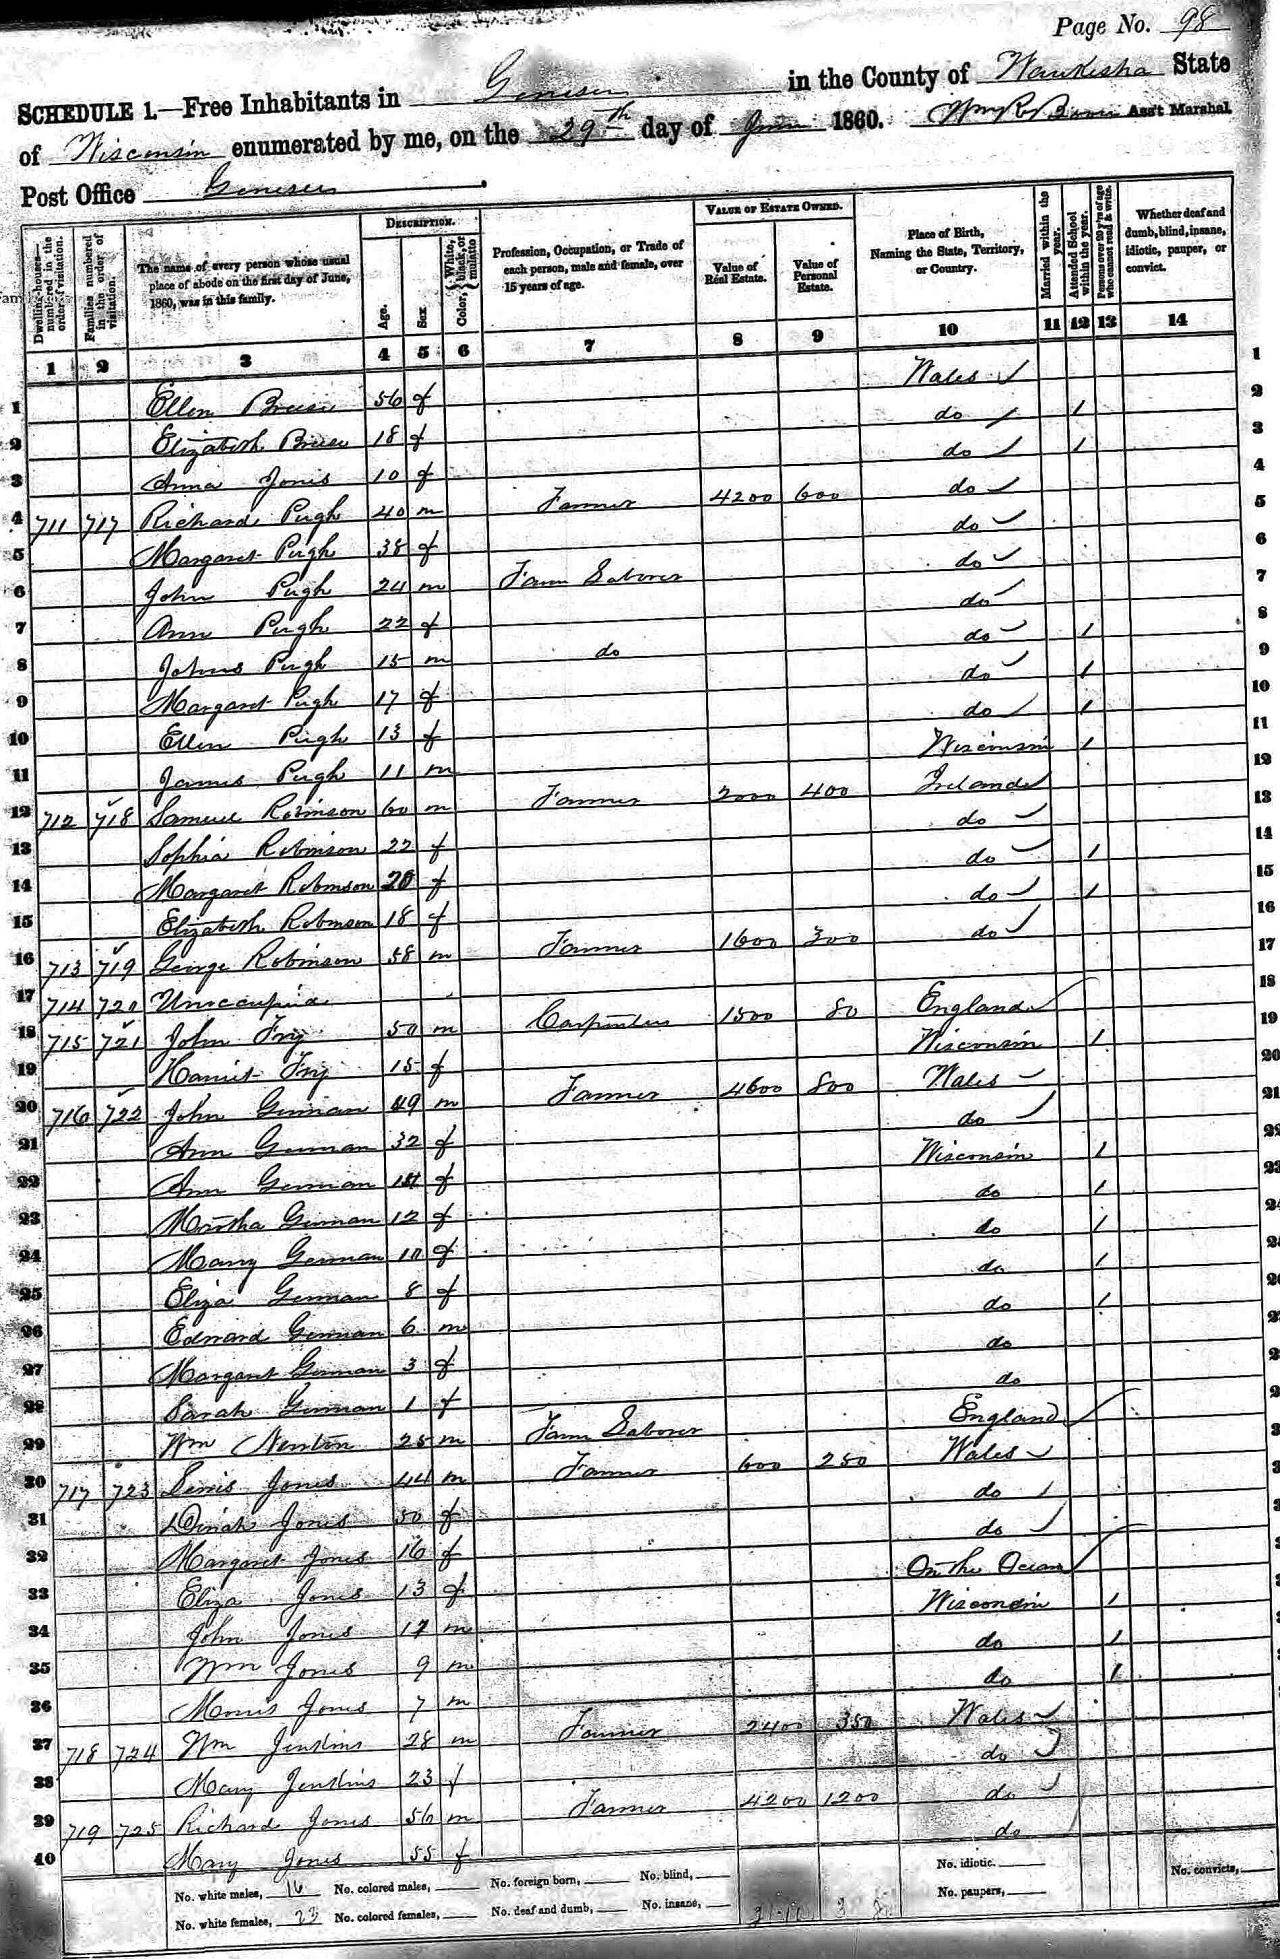 Page No. 98
SCHEDULE 1.—Free Inhabitants in Genesee in the County of Waukesha State
of Wisconsin enumerated by me, on the 29th day of June 1860. Wm R Asst Marshal.
Post Office Genesee
Dwelling-houses—numbered in the order of visitation.
Families numbered in the order of visitation.
The name of every person whose usual place of abode on the first day of June, 1860, was in this family.
DESCRIPTION.
Age.
Sex
Color, { White, black, or mulatto
Profession, Occupation, or Trade of each person, male and female, over 15 years of age.
VALUE OF ESTATE OWNED.
Value of Real Estate.
Value of Personal Estate.
Place of Birth, Naming the State, Territory, or Country.
Married within the year.
Attended School within the year.
Persons over 20 y'rs of age who cannot read & write.
Whether deaf and dumb, blind, insane, idiotic, pauper, or convict.
1 2 3 4 5 6 7 8 9 10 11 12 13 14
1 Ellen Breese 56 f Wales 1
2 Elizabeth Breese 18 f do 1 2
3 Anna Jones 10 f do 1 3
4 711 717 Richard Pugh 40 m Farmer 4200 600 do 4
5 Margaret Pugh 38 f do 5
6 John Pugh 24 m Farm Laborer do 6
7 Ann Pugh 22 f do 7
8 Johns Pugh 15 m do do 1 8
9 Margaret Pugh 17 f do 1 9
10 Ellen Pugh 13 f do 1 10
11 James Pugh 11 m Wisconsin 1 11
12 712 718 Samuel Robinson 60 m Farmer 2000 400 Ireland 12
13 Sophia Robinson 22 f do 13
14 Margaret Robinson 20 f do 1 14
15 Elizabeth Robinson 18 f do 1 15
16 713 719 George Robinson 58 m Farmer 1600 300 do 16
17 714 720 Unoccupied 17
18 715 721 John Fry 50 m Carpenter 1500 80 England 18
19 Harriet Fry 15 f Wisconsin 1 19
20 716 722 John German 49 m Farmer 4600 800 Wales 20
21 Ann German 32 f do 21
22 Ann German 14 f Wisconsin 1 22
23 Martha German 12 f do 1 23
24 Mary German 10 f do 1 24
25 Eliza German 8 f do 1
26 Edward German 6 m do 1
27 Margaret German 3 f do
28 Sarah German 1 f do
29 Wm Newton 25 m Farm Laborer England
30 717 723 Lewis Jones 44 m Farmer 600 250 Wales
31 Dinah Jones 50 f do
32 Margaret Jones 16 f do
33 Eliza Jones 13 f On the Ocean
34 John Jones 17 m Wisconsin 1
35 Wm Jones 9 m do 1
36 Morris Jones 7 m do 1
37 718 724 Wm Jenkins 28 m Farmer 2400 350 Wales
38 Mary Jenkins 23 f do
39 719 725 Richard Jones 56 m Farmer 4200 1200 do
40 Mary Jones 55 f do
No. white males, 16 No. colored males, No. foreign born, No. blind, No. idiotic. No. convicts,
No. white females, 23 No. colored females, No. deaf and dumb, No. insane, No. paupers,